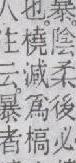 暴陰柔後必
也。橈減爲槁
人云。暴者